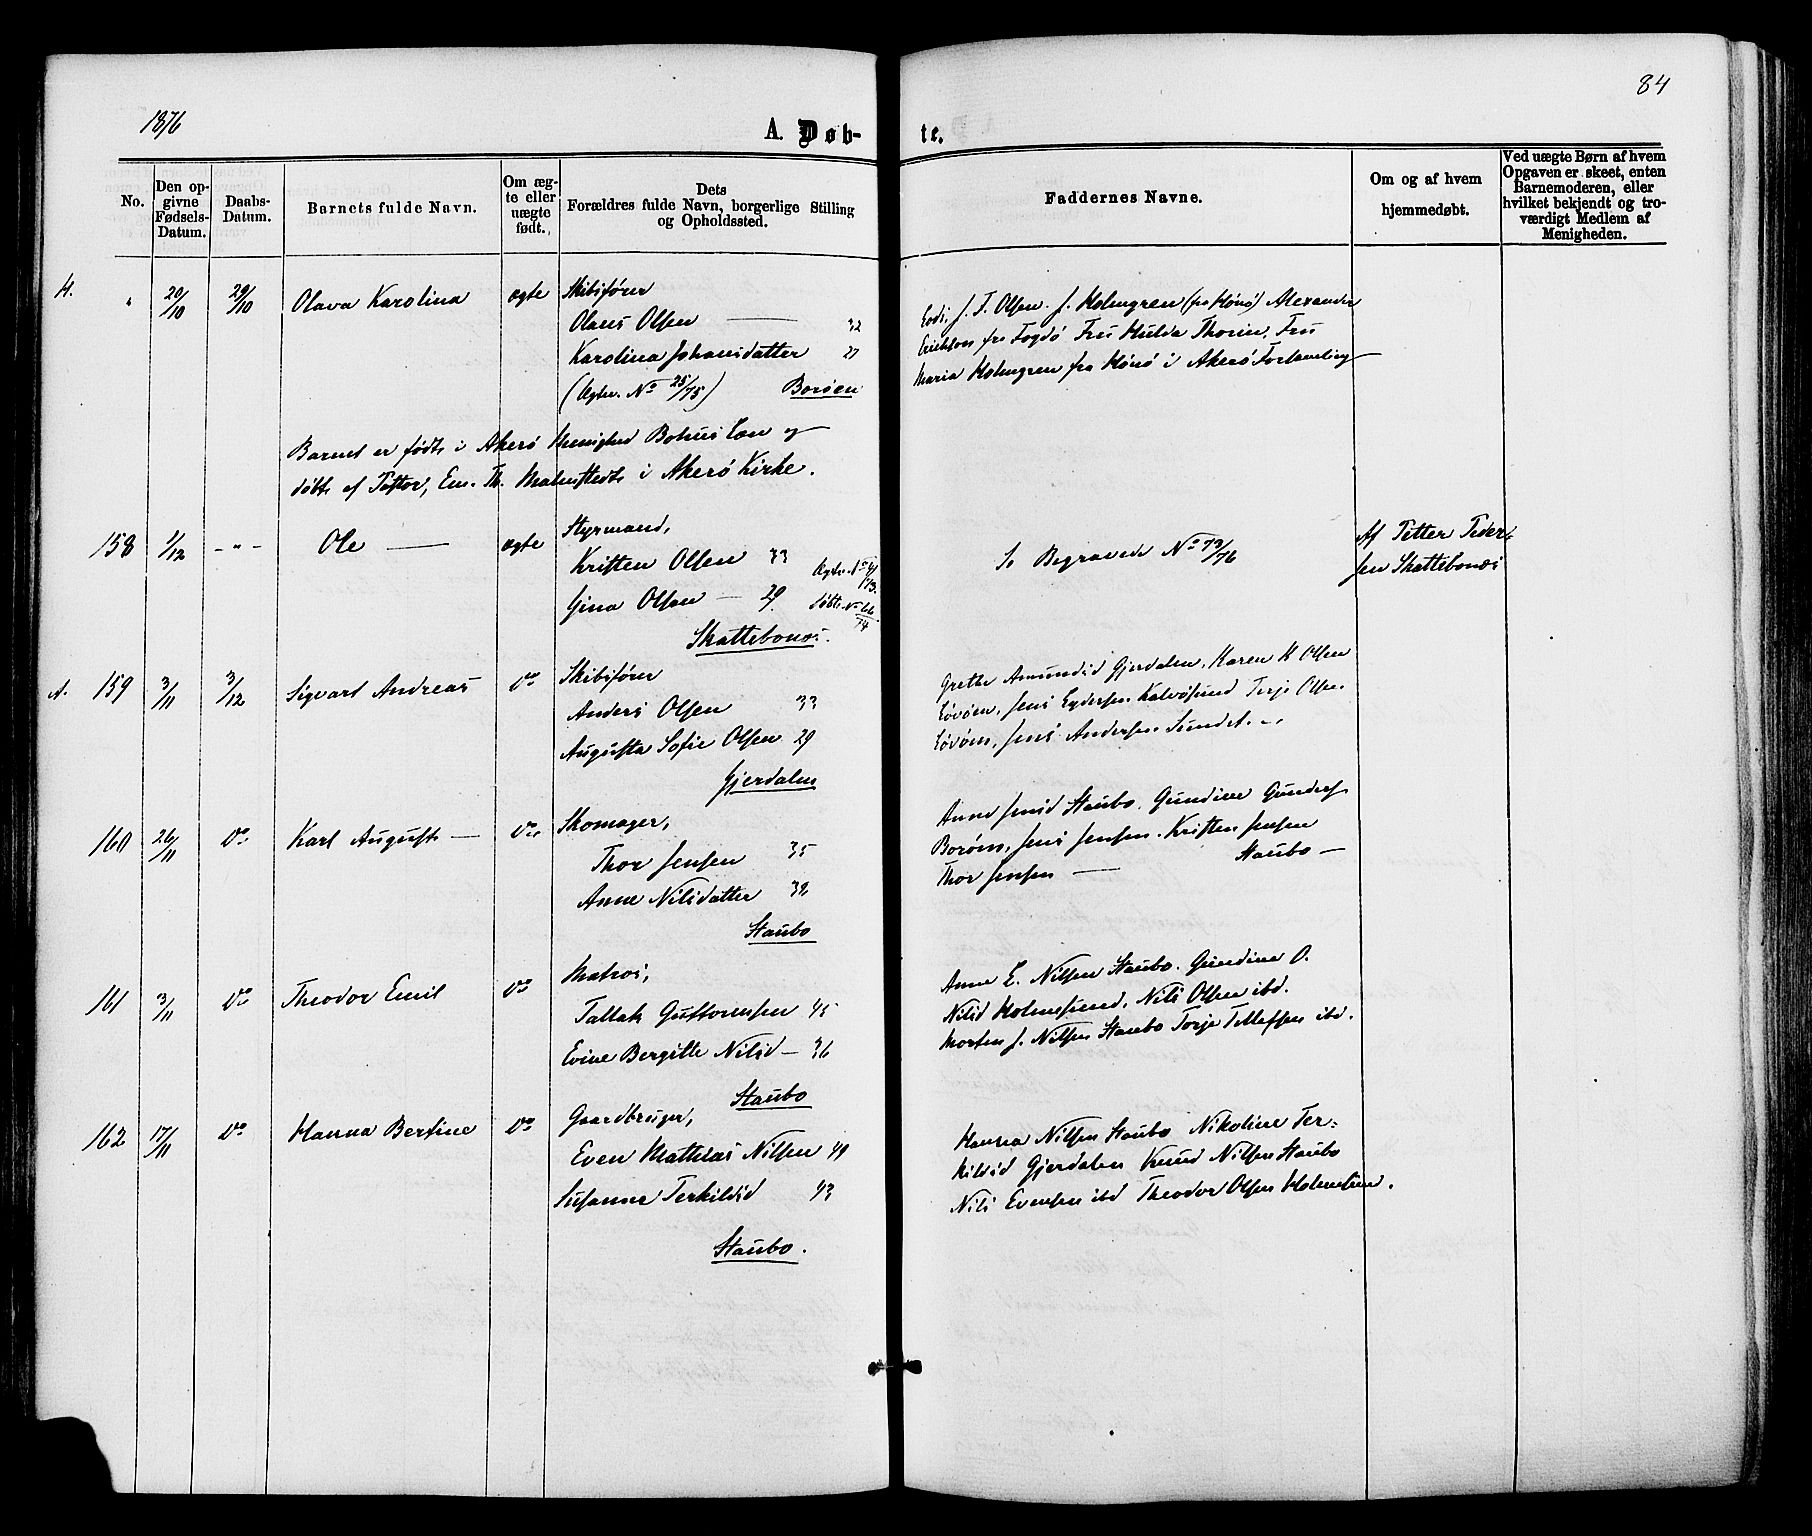 84
1876
A. Døb-
te.
No.
Den op-
givne
Fødsels-
Datum.
Daabs-
Datum.
Barnets fulde Navn.
Om æg-
te eller
uægte
født.
Dets
Forældres fulde Navn, borgerlige Stilling
og Opholdssted.
Faddernes Navne.
Om og af hvem
hjemmedøbt.
Ved uægte Børn af hvem
Opgaven er skeet, enten
Barnemoderen, eller
hvilket bekjendt og tro-
værdigt Medlem af
Menigheden.
H. " 20/10 29/10 Olava Karolina ægte Skibsfører
Olaus Olsen — 32
Karolina Johansdatter 27
(Ægtev. No 25/75) Borøen
J. T. Olsen. J. Holmgren (fra Hönö) Alexander
Erickson fra Fogdö Fru Hulda Thorin, Fru
Maria Holmgren fra Hönö i Akerö Forsamling
Barnet er født i Akerö Menighed Bohus Læn og
døbt af Pastor, Em. Th. Malmstedt i Akerö Kirke.
158 1/12 -"- Ole — ægte Styrmand,
Kristen Olsen 33
Gina Olsen — 29
Skattebonæs.
døbt. No 66/74
S. Begravede No 73/76
Af Petter Peder-
sen Skattebonæs
A. 159 3/11 3/12 Sigvart Andreas do Skibsfører
Anders Olsen 33
Augusta Sofie Olsen 29
Gjerdalen
Grethe Amundsd Gjerdalen, Karen K Olsen
Løvøen, Jens Eydersen Kalvøsund Terje Olsen
Løvøen, Jens Andersen Sundet.
160 26/11 do Karl August — do Skomager,
Thor Jensen 35
Anne Nilsdatter 32
Staubo
Anne Jensd Staubo. Gundine Gunders
Borøen, Jens Jensen. Kristen Jensen
Thor Jensen — Staubo —
161 3/11 do Theodor Emil do Matros,
Tallak Guttormsen 45
Evine Bergitte Nilsd — 36
Staubo
Anne E. Nilsen Staubo. Gundine O.
Nilsd Holmesund, Nils Olsen ibd.
Morten J. Nilsen Staubo Terje Tellefsen ibd.
162 17/11 do Hanna Bertine do Gaardbruger,
Even Mathias Nilsen 49
Susanne Terkildsd 43
Staubo.
Hanna Nilsen Staubo Nikoline Ter-
kildsd Gjerdalen Knud Nilsen Staubo
Nils Evensen ibd Theodor Olsen Holmesun.